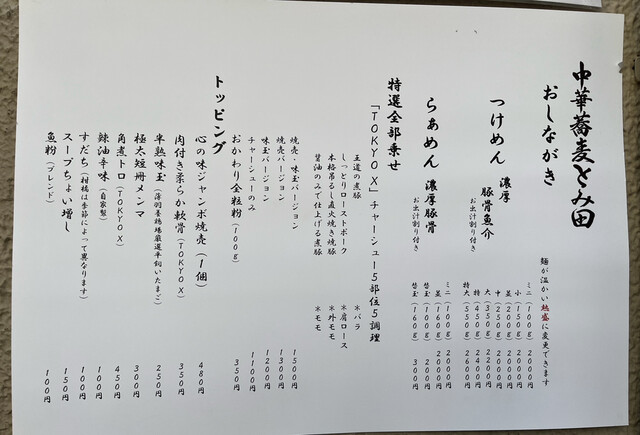 中華蕎麦とみ田
おしながき
麺が温かい熱盛に変更できます
つけめん 濃厚豚骨魚介 お出汁割り付き
ミニ(100g) 2000円
小(150g) 2000円
並(200g) 2000円
中(250g) 2000円
大(350g) 2200円
特(450g) 2400円
特大(550g) 2600円
らぁめん 濃厚豚骨 お出汁割り付き
ミニ(100g) 2000円
並(160g) 2000円
替玉(100g) 200円
替玉(160g) 300円
特選全部乗せ
「TOKYO X」チャーシュー5部位5調理
王道の煮豚 *バラ
しっとりローストポーク *肩ロース
本格吊るし直火焼き焼豚 *外モモ
醤油のみで仕上げる煮豚 *モモ
焼売・味玉バージョン 1500円
焼売バージョン 1300円
味玉バージョン 1200円
チャーシューのみ 1100円
おかわり全粒粉(100g) 350円
トッピング
心の味ジャンボ焼売(1個) 480円
肉付き柔らか軟骨(TOKYO X) 350円
半熟味玉(薄羽養鶏場厳選平飼いたまご) 250円
極太短冊メンマ 300円
角煮トロ(TOKYO X) 450円
辣油辛味(自家製) 100円
すだち(柑橘は季節によって異なります) 100円
スープちょい増し 150円
魚粉(ブレンド) 100円